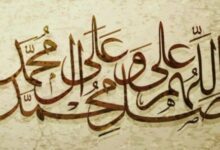 اللهم صل علی محمد و علی آل محمد